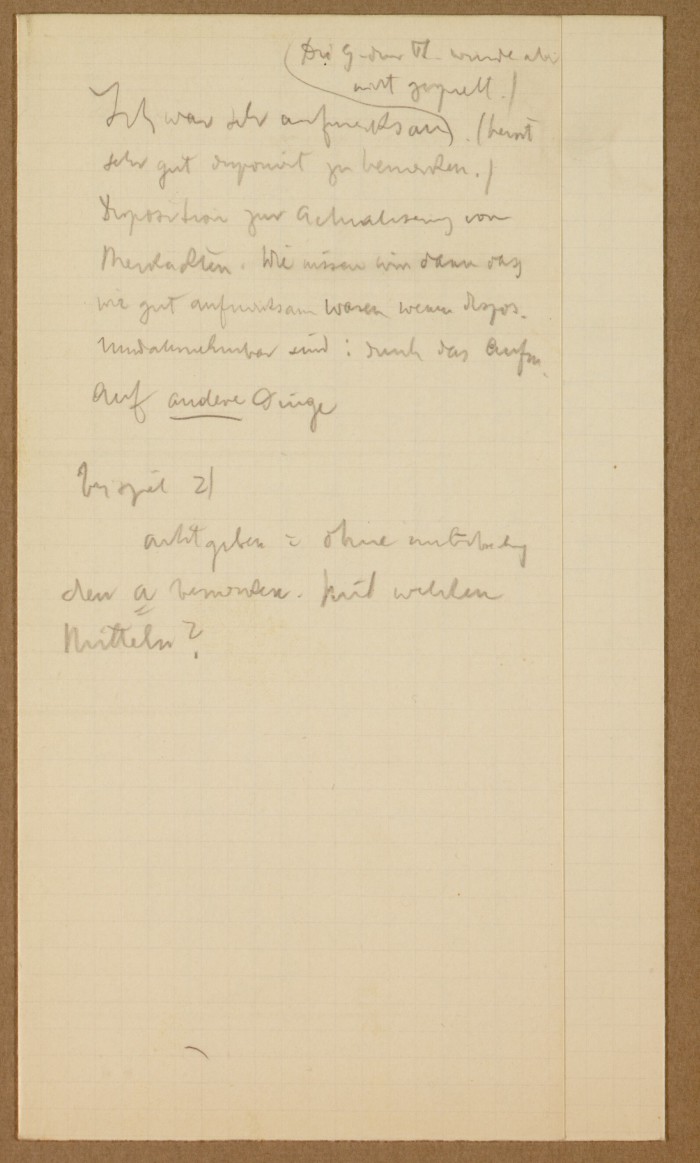 wurde aber
nicht gespielt.)
Ich war sehr aufmerksam. (heisst
sehr gut disponiert zu bemerken.)
Disposition zur Actualisierung von
Wie wissen wir dann dass
wir gut aufmerksam waren wenn Dispos.
sind: durch das Aufm.
Auf andere Dinge
Beispiel 2)
achtgeben = ohne
den a bemerken. Mit welchen
Mitteln?